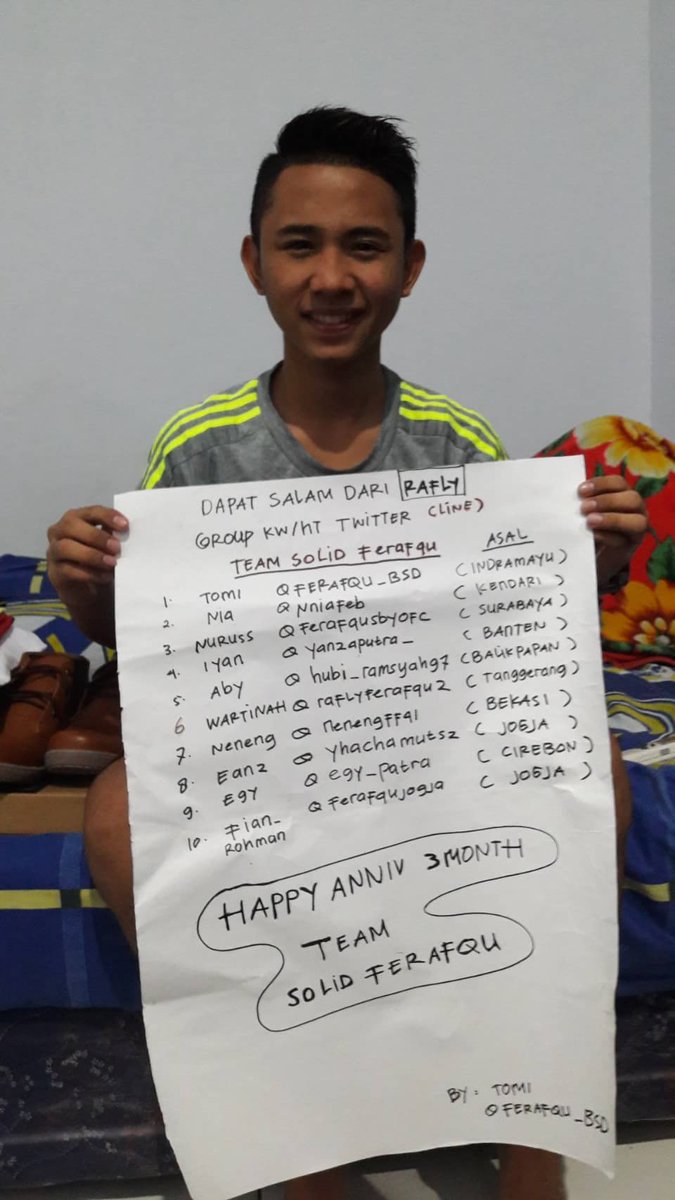 DAPAT SALAM DARI RAFLY
GROUP KW/HT TWITTER (LINE)
TEAM SOLID FERAFQU ASAL
1. TOMI @FERAFQU_BSD (INDRAMAYU)
2. NIA @NniaFeb (KENDARI)
3. NURUSS @FeraFqusbyOFC (SURABAYA)
4. IYAN @Yanzaputra_ (BANTEN)
5. ABY @hubi_ramsyah97 (BALIKPAPAN)
6 WARTINAH @raFLyFeraFqu2 (Tanggerang)
7. Neneng @nenengFF91 (BEKASI)
8. Eanz @yhachamutsz (JOGJA)
9. Egy @egy_Patra (CIREBON)
10. Fian_Rohman @FeraFquJogja (JOGJA)
HAPPY ANNIV 3 MONTH
TEAM
SOLID FERAFQU
BY : TOMI
@FERAFQU_BSD